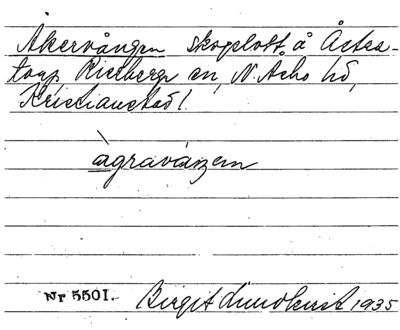 Åkervången skogslott å Åstas-
torp Riseberga sn, N. Åsbo hd,
Kristianstad l.
àgraváŋen
Nr 5501. Birgit Lundkvist 1935